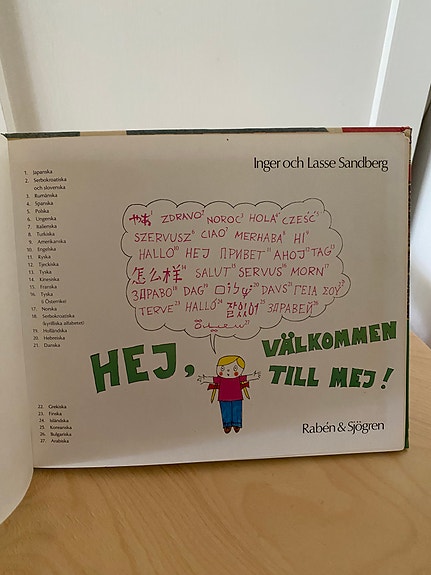 Inger och Lasse Sandberg
1. Japanska
2. Serbokroatiska
och slovenska
3. Rumänska
4. Spanska
5. Polska
6. Ungerska
7. Italienska
8. Turkiska
9. Amerikanska
10. Engelska
11. Ryska
12. Tjeckiska
13. Tyska
14. Kinesiska
15. Franska
16. Tyska
(i Österrike)
17. Norska
18. Serbokroatiska
(kyrilliska alfabetet)
19. Holländska
20. Hebreiska
21. Danska
22. Grekiska
23. Finska
24. Isländska
25. Koreanska
26. Bulgariska
27. Arabiska
やあ¹ ZDRAVO² NOROC³ HOLA⁴ CZEŚĆ⁵
SZERVUSZ⁶ CIAO⁷ MERHABA⁸ HI⁹
HALLO¹⁰ HEJ ПРИВЕТ¹¹ AHOJ¹² TAG¹³
怎么样¹⁴ SALUT¹⁵ SERVUS¹⁶ MORN¹⁷
ЗДРАВО¹⁸ DAG¹⁹ שלום²⁰ DAVS²¹ ΓΕΙΑ ΣΟΥ²²
TERVE²³ HALLÓ²⁴ ЗДРАВЕЙ²⁶
HEJ, VÄLKOMMEN
TILL MEJ!
Rabén & Sjögren